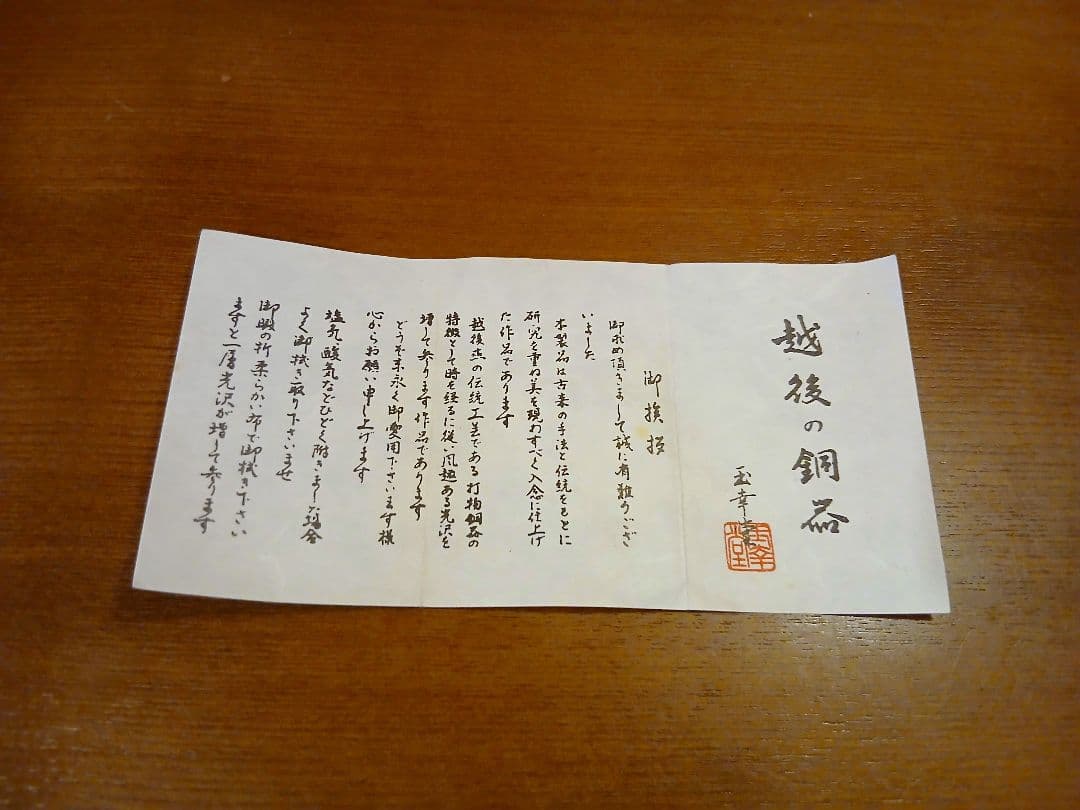 越後の銅器
玉幸堂
玉幸堂
御挨拶
御求め頂きまして誠に有難うござ
いました
本製品は古来の手法と伝統をもとに
研究を重ね美を現わすべく入念に仕上げ
た作品であります
越後燕の伝統工芸である打物銅器の
特徴として時を経るに従い風趣ある光沢を
増して参ります作品であります
どうぞ末永く御愛用下さいます様
心からお願い申し上げます
塩気酸気などひどく附きました場合
よく御拭き取り下さいませ
御暇の折柔らかい布で御拭き下さい
ますと一層光沢が増して参ります